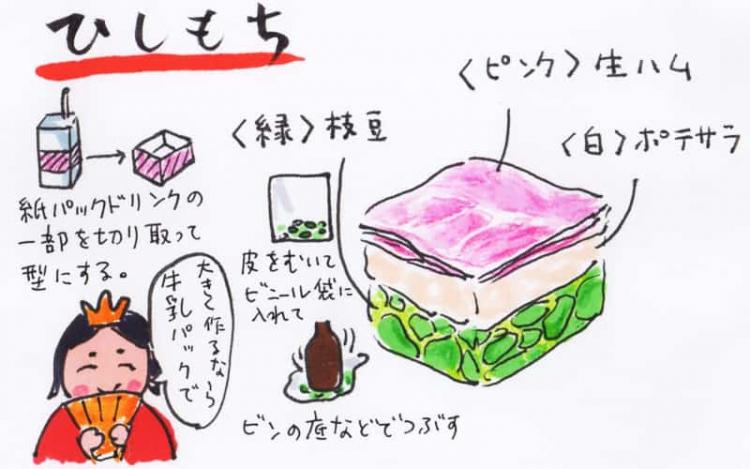 ひしもち
〈ピンク〉生ハム
〈緑〉枝豆
〈白〉ポテサラ
紙パックドリンクの
一部を切り取って
型にする。
皮をむいて
ビニール袋に
入れて
ビンの底などでつぶす
大きく作るなら
牛乳パックで